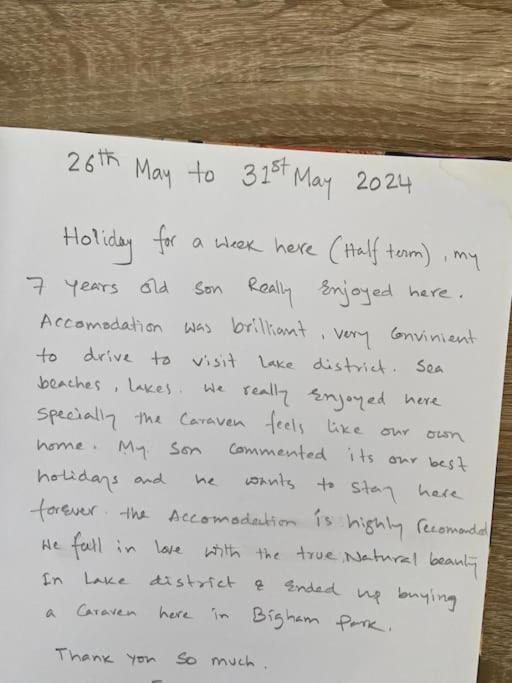 26th May to 31st May 2024
Holiday for a week here (Half term), my
7 years old son Really Enjoyed here.
Accomodation was brilliant, very Convinient
to drive to visit Lake district. Sea
beaches, Lakes. We really Enjoyed here
Specially the Caraven feels like our own
home. My Son Commented its our best
holidays and he wants to stay here
forever. the Accomodation is highly recomonded
We fall in love with the true Natural beauty
In Lake district & Ended up buying
a Caraven here in Bigham Park.
Thank you so much.